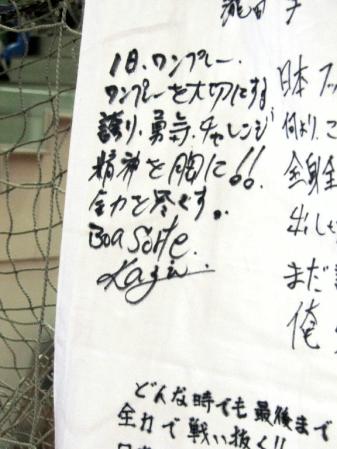 1日、ワンプレー、
ワンプレーを大切にする
誇り、勇気、チャレンジ
精神を胸に!!
全力を尽くす。
Boa Sorte.
Kazu
日本
何より、こ
全身全
出し
まだ
俺
どんな時でも最後まで
全力で戦い抜く!!